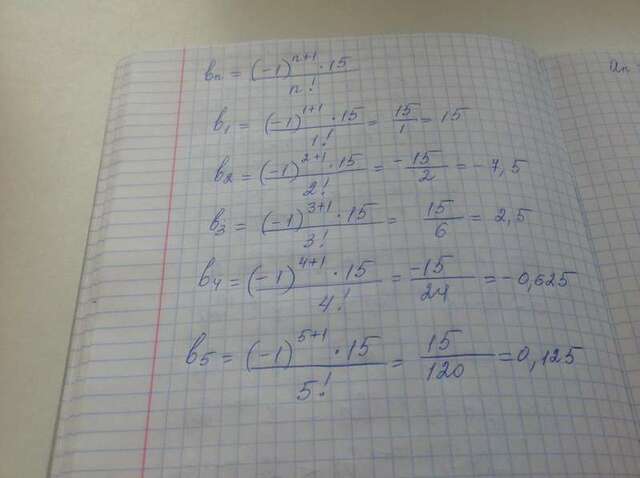 bₙ = (-1)ⁿ⁺¹ · 15 / n!
b₁ = (-1)¹⁺¹ · 15 / 1! = 15/1 = 15
b₂ = (-1)²⁺¹ · 15 / 2! = -15/2 = -7,5
b₃ = (-1)³⁺¹ · 15 / 3! = 15/6 = 2,5
b₄ = (-1)⁴⁺¹ · 15 / 4! = -15/24 = -0,625
b₅ = (-1)⁵⁺¹ · 15 / 5! = 15/120 = 0,125